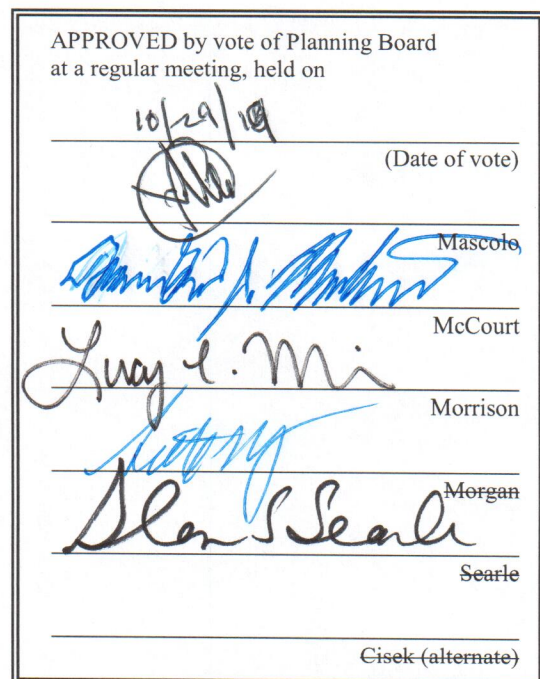 APPROVED by vote of Planning Board
at a regular meeting, held on
10/29/19
(Date of vote)
Mascolo
McCourt
Lucy C. Mi
Morrison
Morgan
Alan S Searle
Searle
Cisek (alternate)